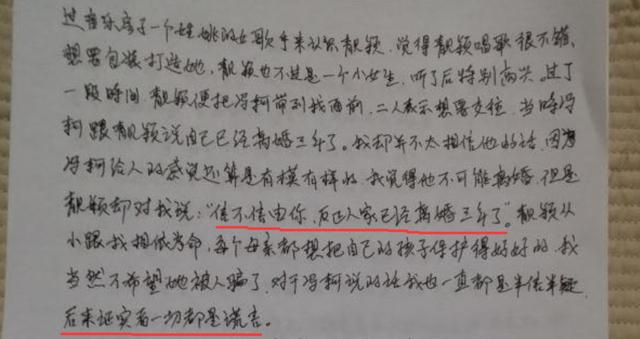 过音乐房子一个女姚的女歌手来认识靓颖，觉得靓颖唱歌很不错、
想要包装打造她，靓颖也不过是一个小女生，听了后特别高兴。过了
一段时间靓颖便把冯柯带到我面前，二人表示想要交往，当时冯
柯跟靓颖说自己已经离婚三年了。我却并不太相信他的话，因为
冯柯给人的感觉还算是有模有样的，我觉得他不可能离婚，但是
靓颖却对我说：“信不信由你，反正人家已经离婚三年了”。靓颖从
小跟我相依为命，每个母亲都想把自己的孩子保护得好好的，我
当然不希望她被人骗了，对于冯柯说的话我也一直都是半信半疑，
后来证实着一切都是谎言。